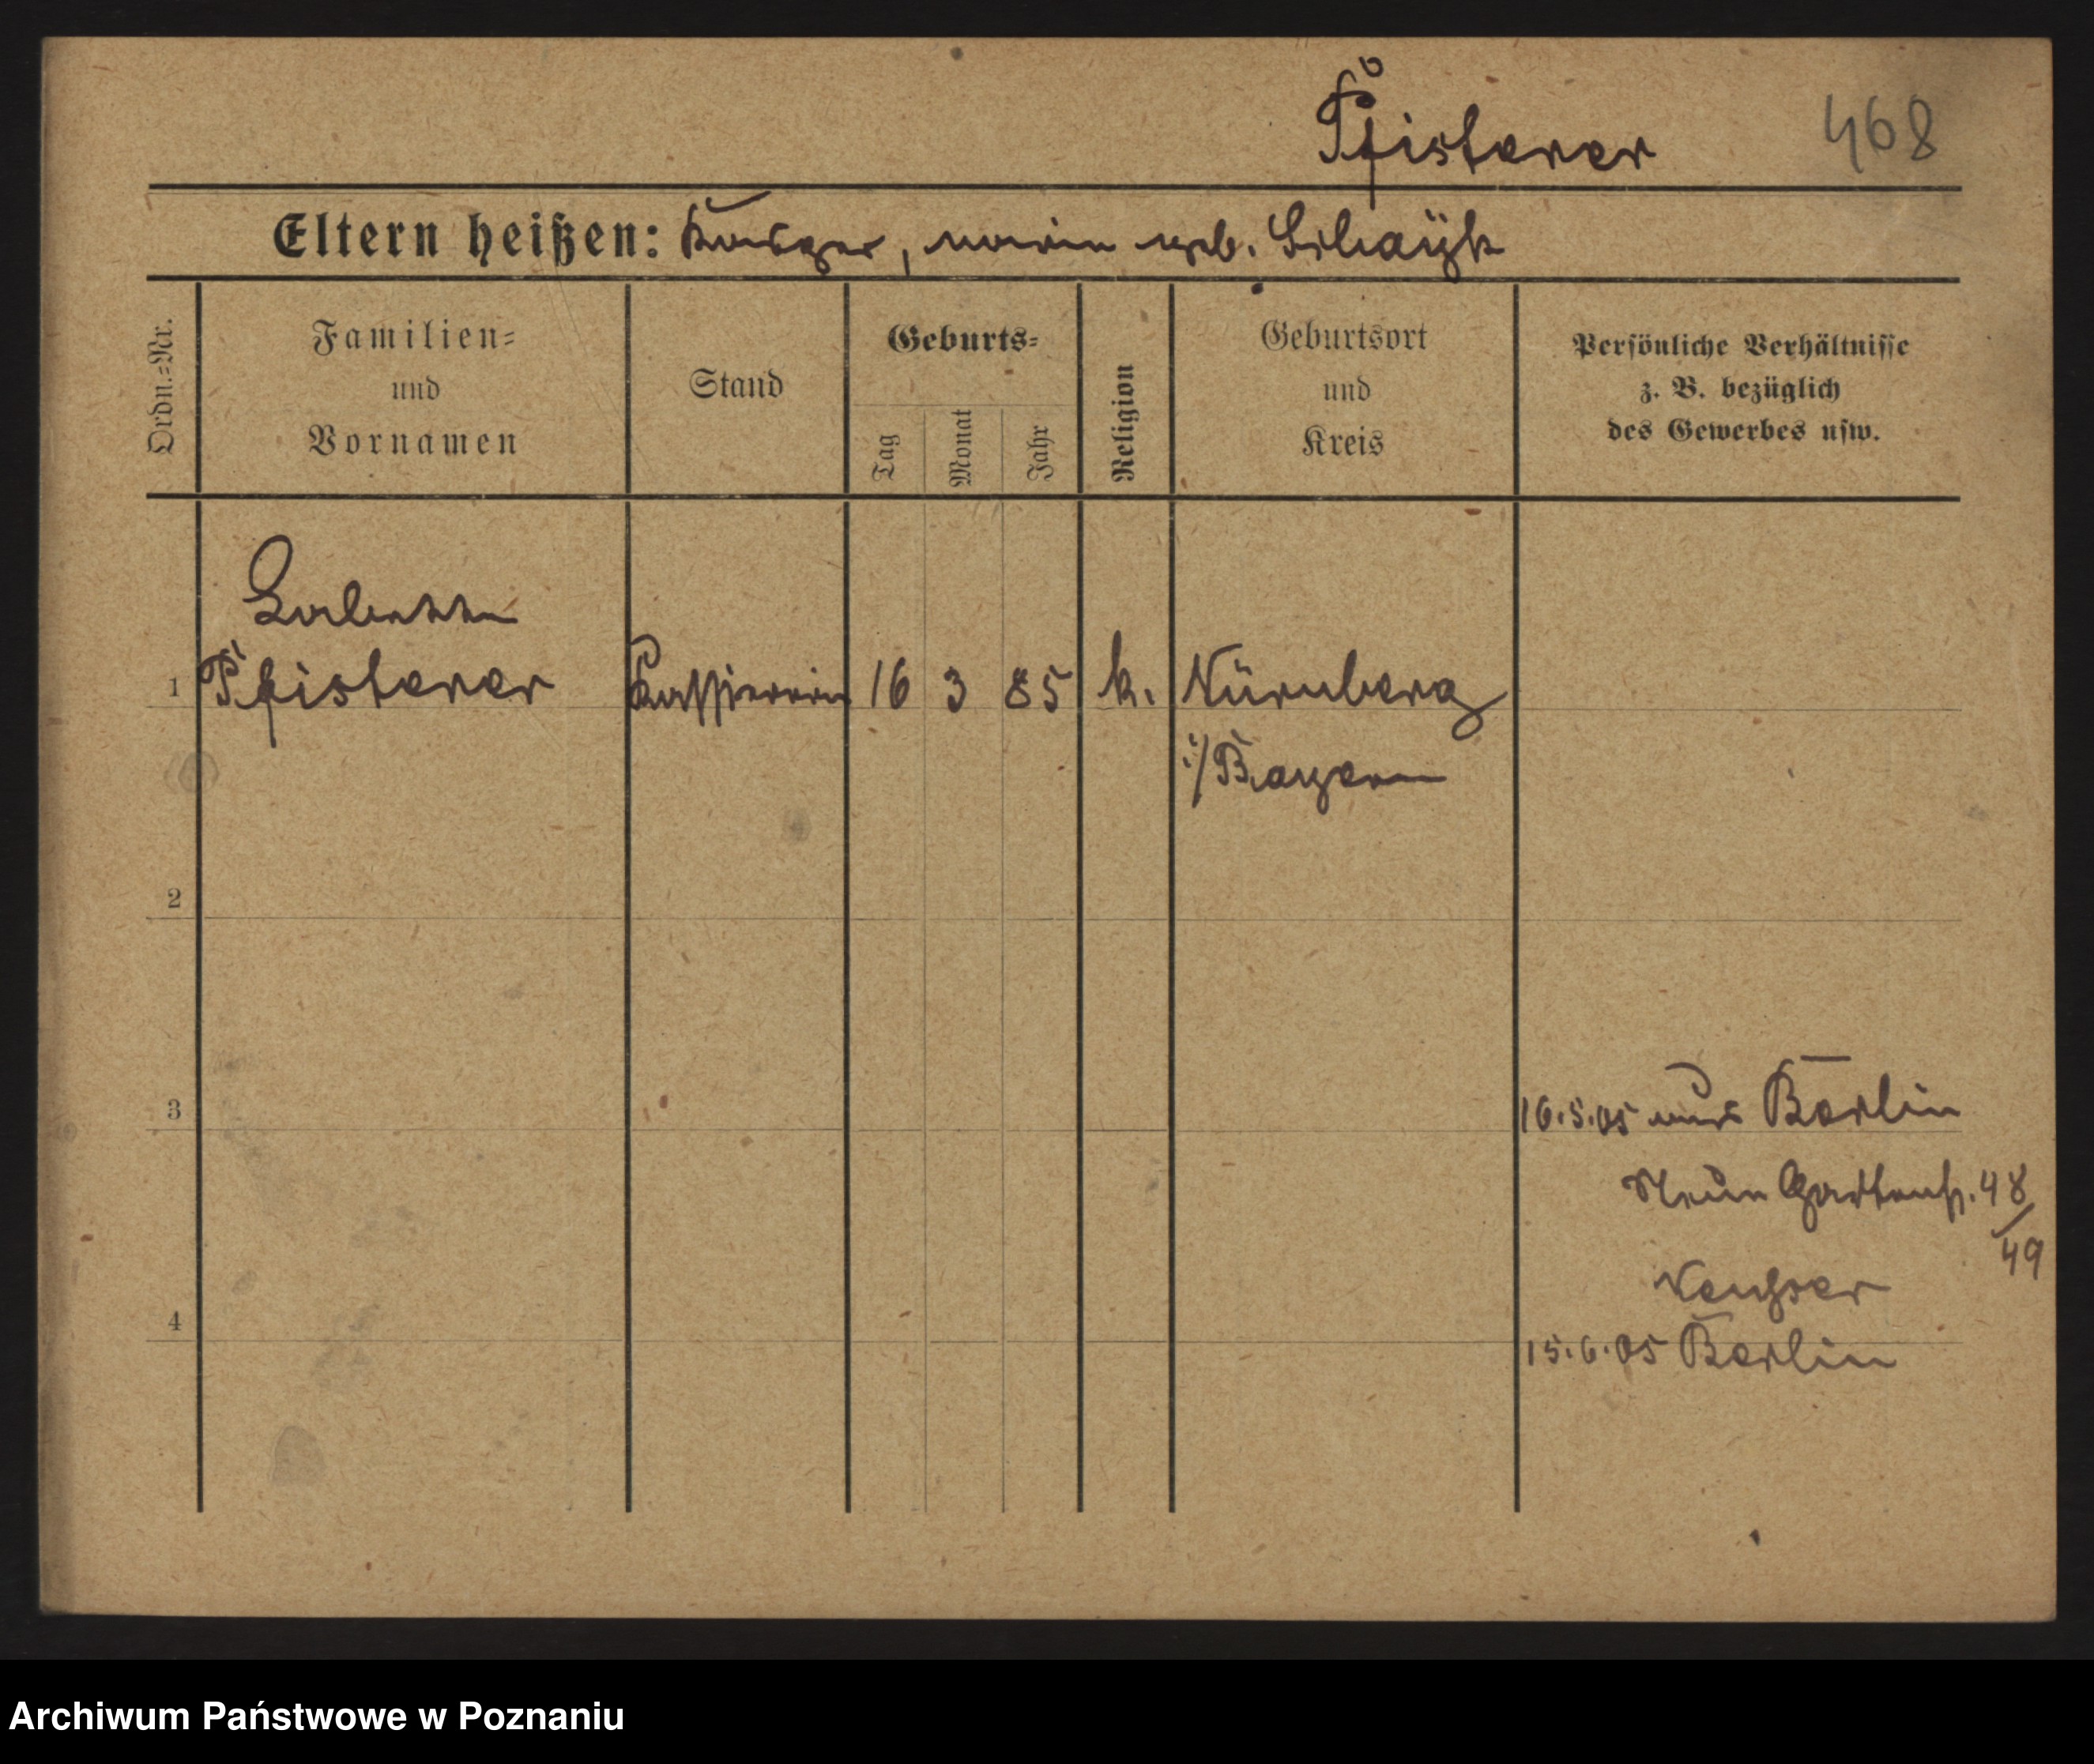 Pfisterer 468
Eltern heißen: geb.
Ordn.=Nr.
Familien=
und
Vornamen
Stand
Geburts=
Tag
Monat
Jahr
Religion
Geburtsort
und
Kreis
Persönliche Verhältnisse
z. B. bezüglich
des Gewerbes usw.
Babette
1 Pfisterer Kassiererin 16 3 85 k. Nürnberg
i/Bayern
2
3 16.5.05 aus Berlin
Neue Gartenstr. 48/
49
4
15.6.05 Berlin
Archiwum Państwowe w Poznaniu